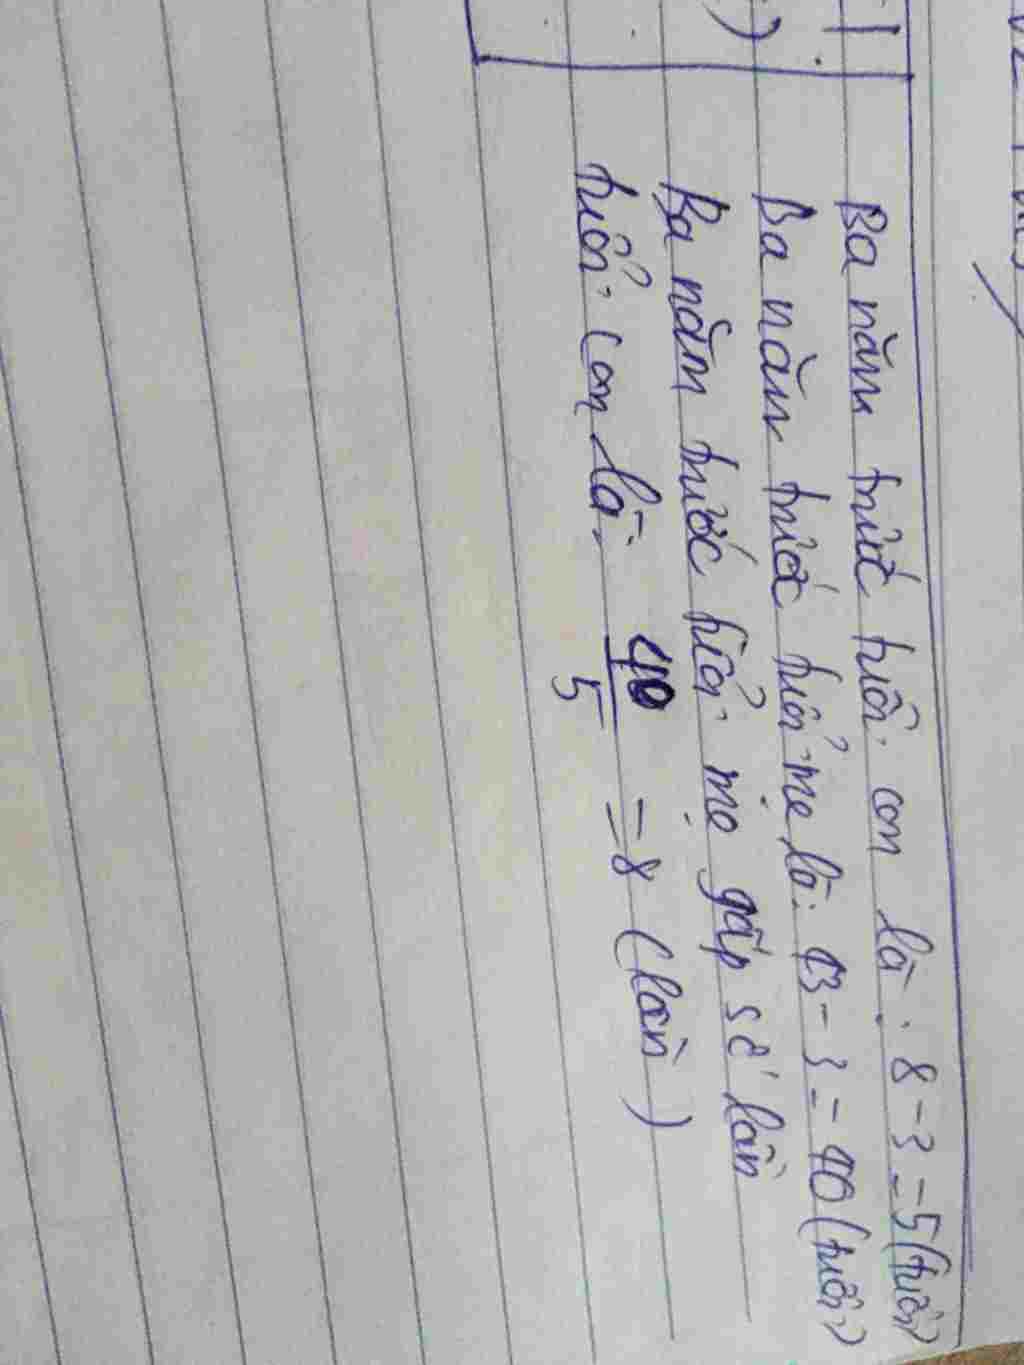 Ba năm trước tuổi con là: 8 - 3 = 5 (tuổi)
Ba năm trước tuổi mẹ là: 43 - 3 = 40 (tuổi)
Ba năm trước tuổi mẹ gấp số lần
tuổi con là: 40/5 = 8 (lần)